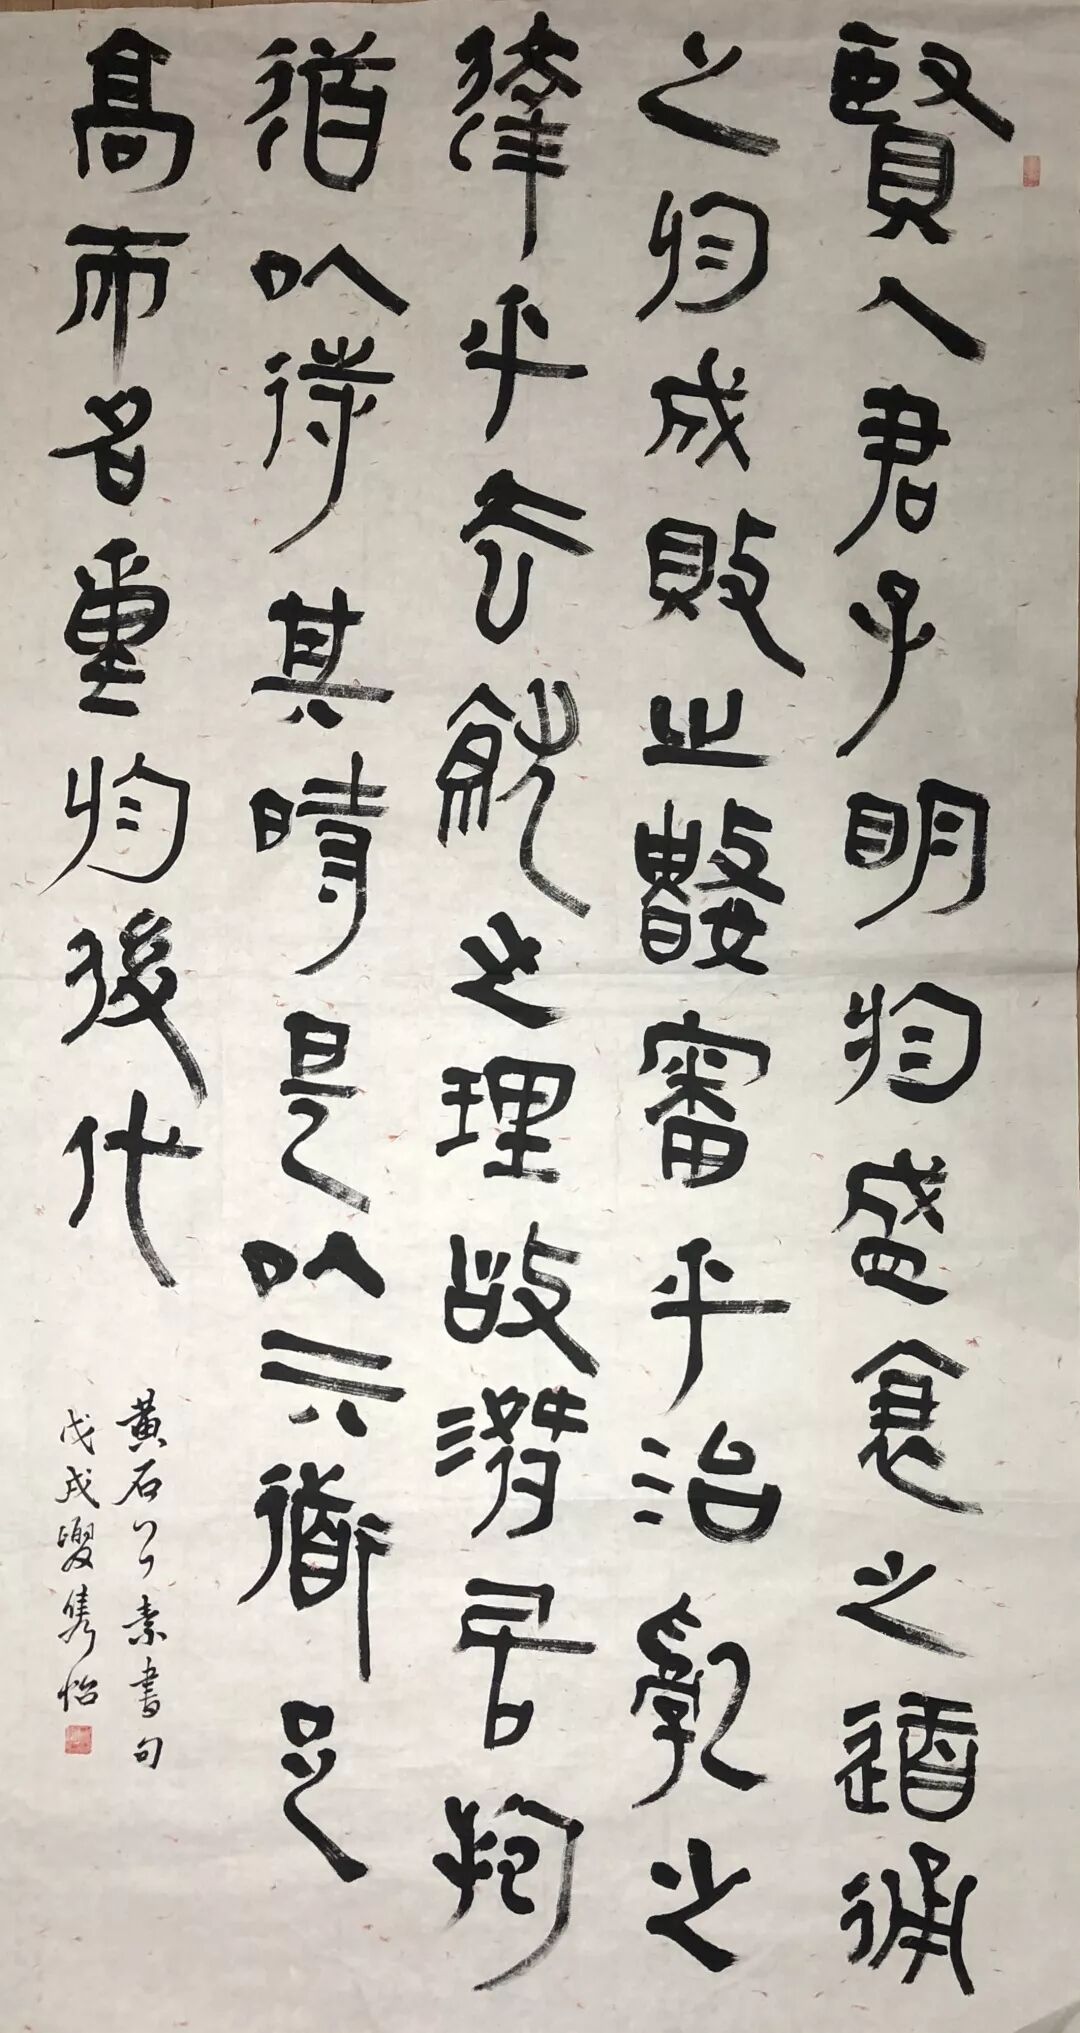 賢人君子明於盛衰之道通
之於成敗之數審乎治亂之
達乎去就之理故潛居抱
道以待其時是以其道足
高而名重於後代
黃石公素書句
戊戌夏雋怡